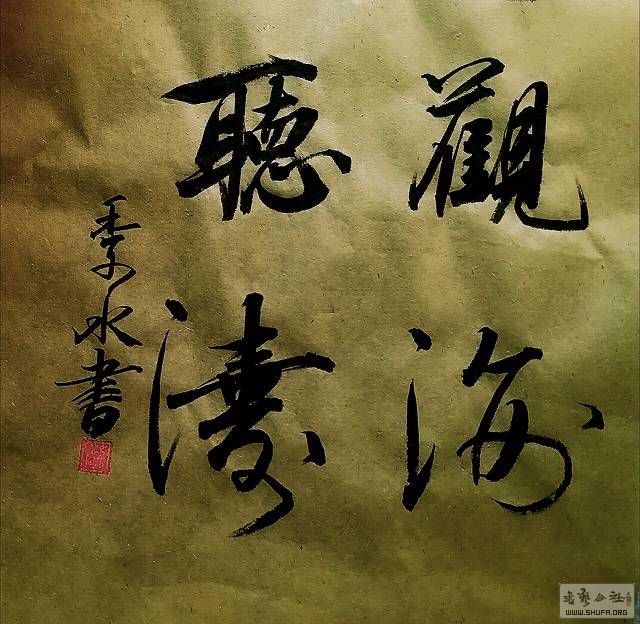 觀海
聽濤
季水書
書法公社
WWW.SHUFA.ORG